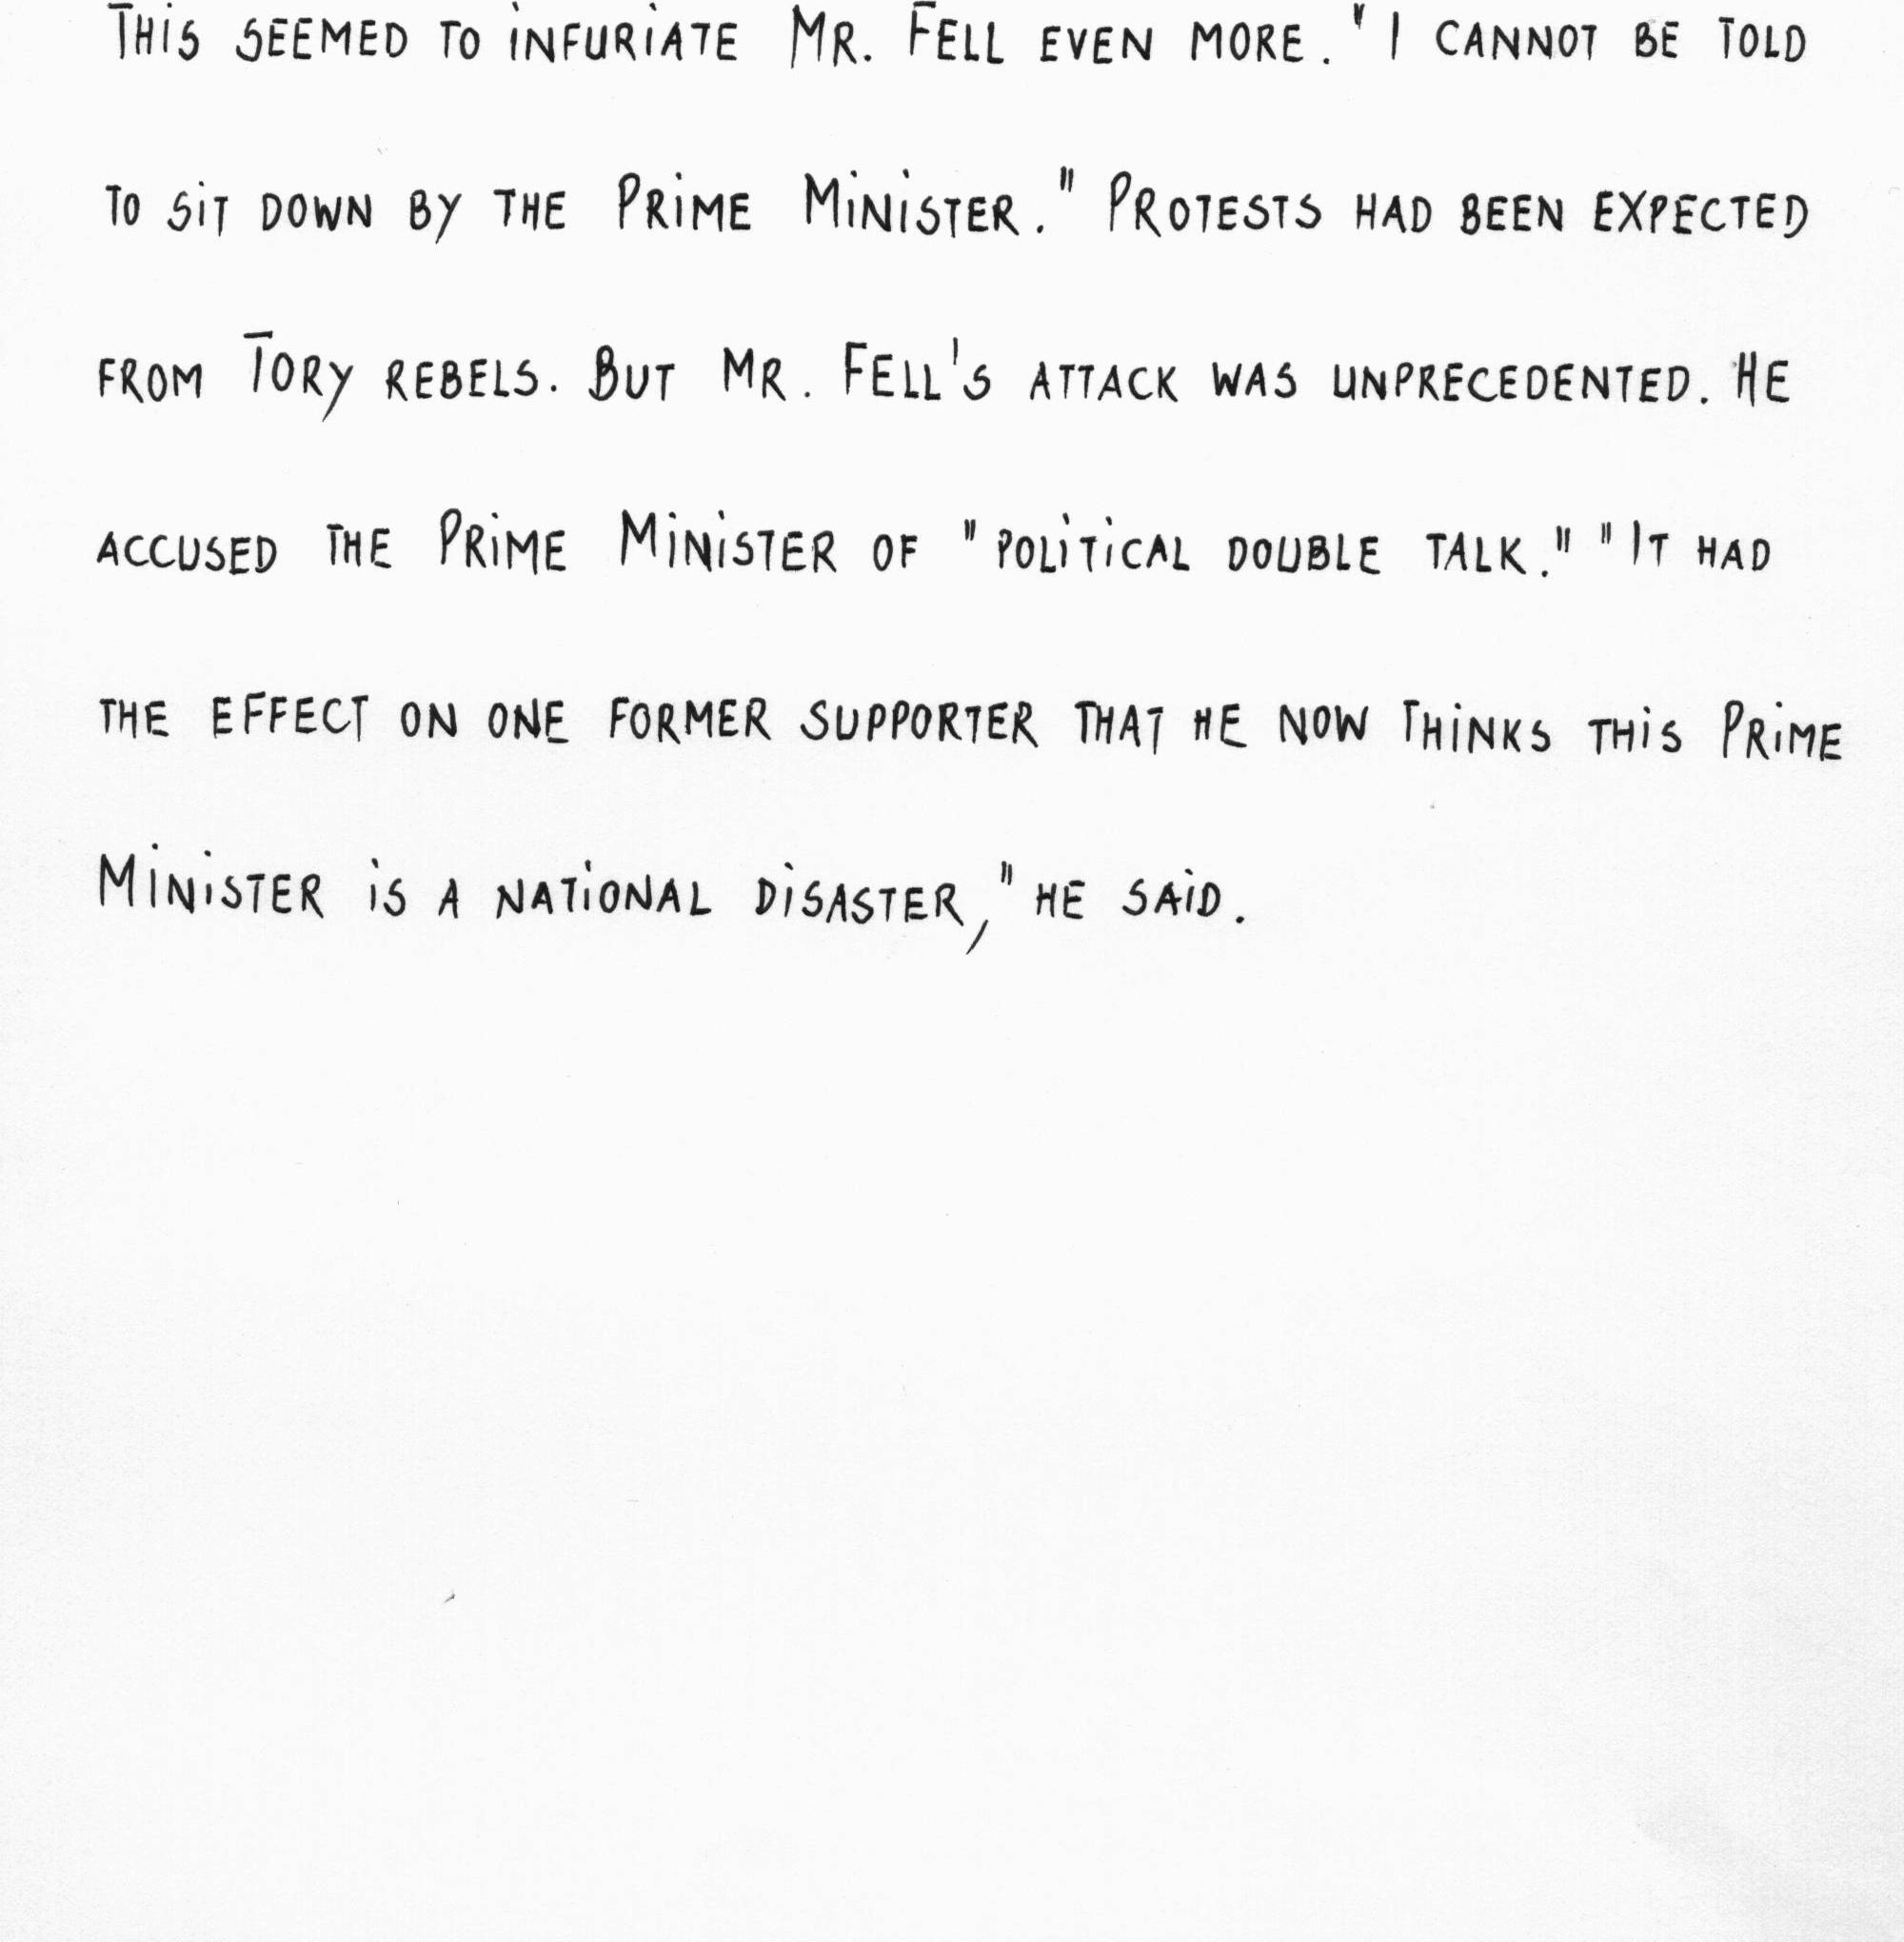 This seemed to infuriate Mr. Fell even more. "I cannot be told
to sit down by the Prime Minister." Protests had been expected
from Tory rebels. But Mr. Fell's attack was unprecedented. He
accused the Prime Minister of "political double talk." "It had
the effect on one former supporter that he now thinks this Prime
Minister is a national disaster," he said.